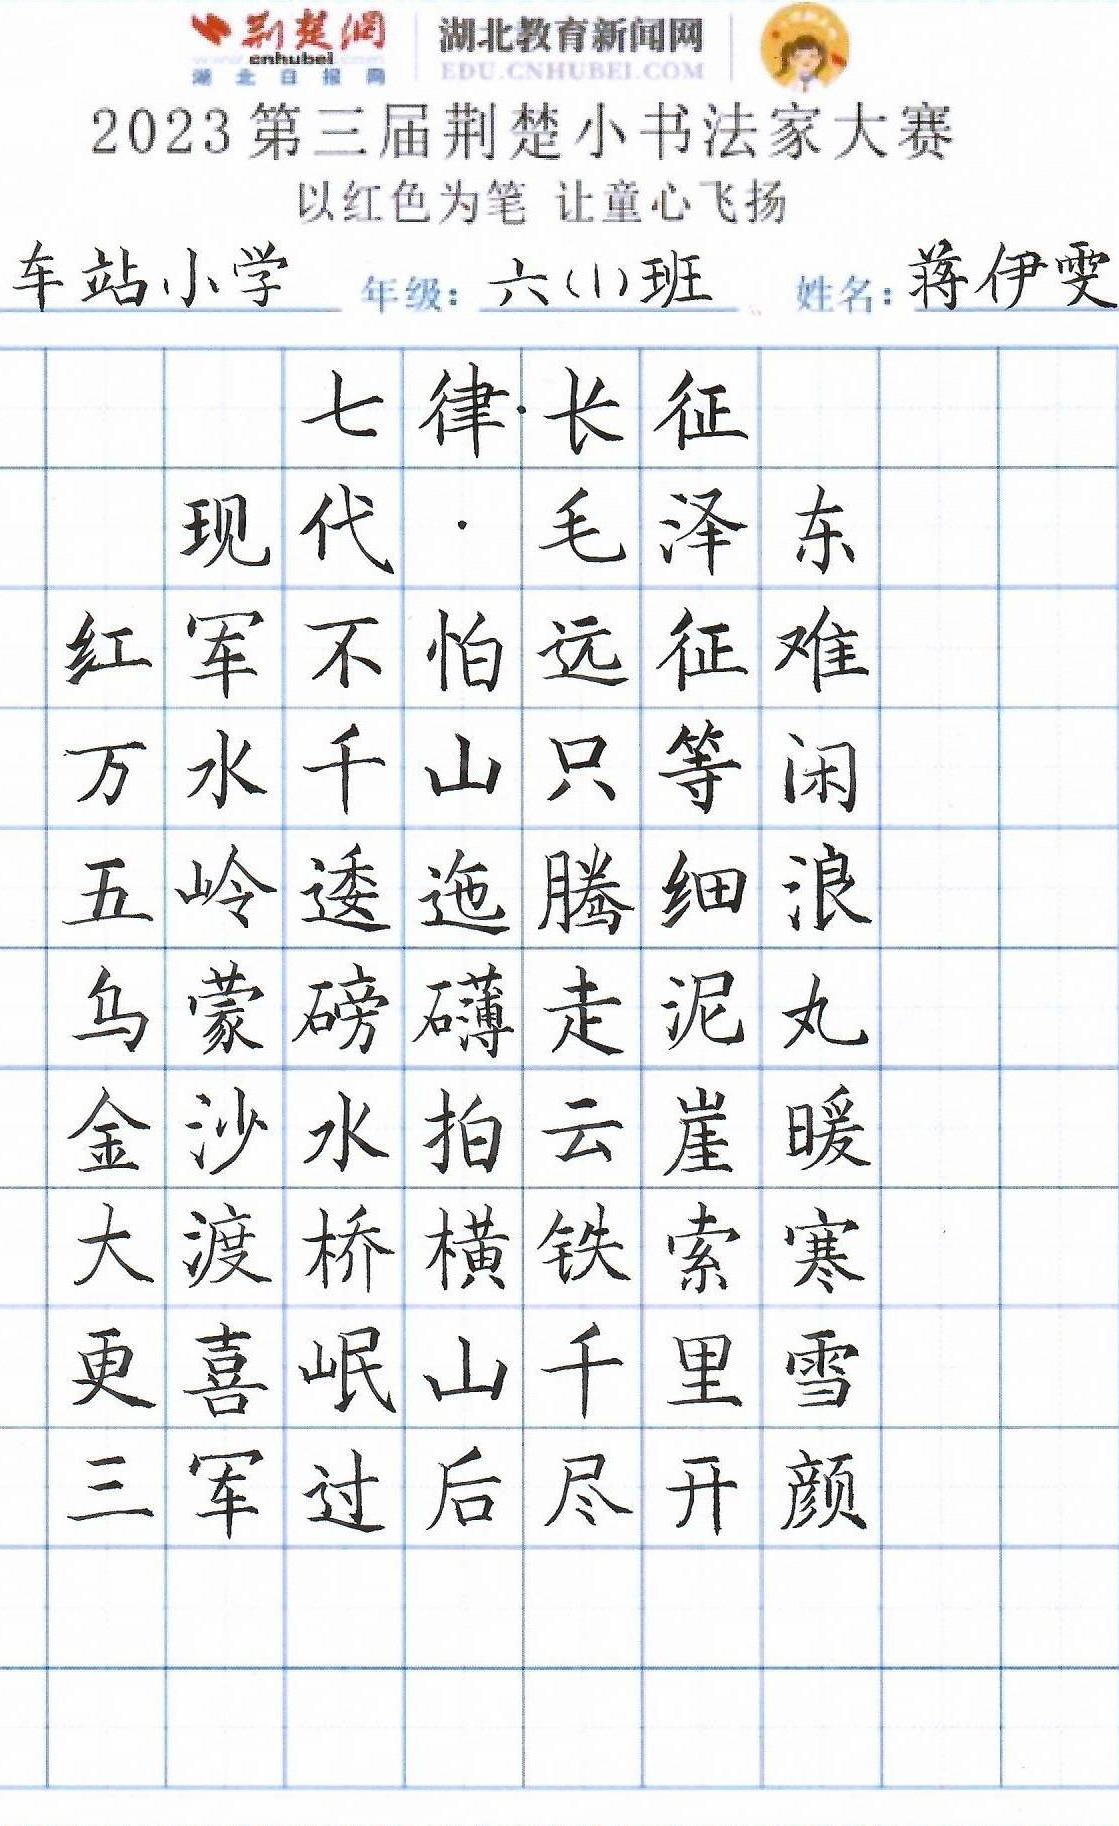 荆楚网 湖北教育新闻网
www.cnhubei.com EDU.CNHUBEI.COM
湖北日报网
2023第三届荆楚小书法家大赛
以红色为笔 让童心飞扬
车站小学 年级：六(1)班 姓名：蒋伊雯
七律·长征
现代·毛泽东
红军不怕远征难
万水千山只等闲
五岭逶迤腾细浪
乌蒙磅礴走泥丸
金沙水拍云崖暖
大渡桥横铁索寒
更喜岷山千里雪
三军过后尽开颜